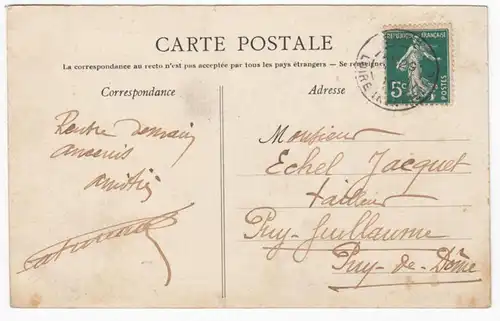 CARTE POSTALE
La correspondance au recto n'est pas acceptée par tous les pays étrangers — Se renseigner
Correspondance
Adresse
RÉPUBLIQUE FRANÇAISE
5c
POSTES
LOIRE IN
Rentre demain
Ancenis
amitiés
Monsieur
Echel Jacquet
tailleur
Puy-Guillaume
Puy-de-Dôme